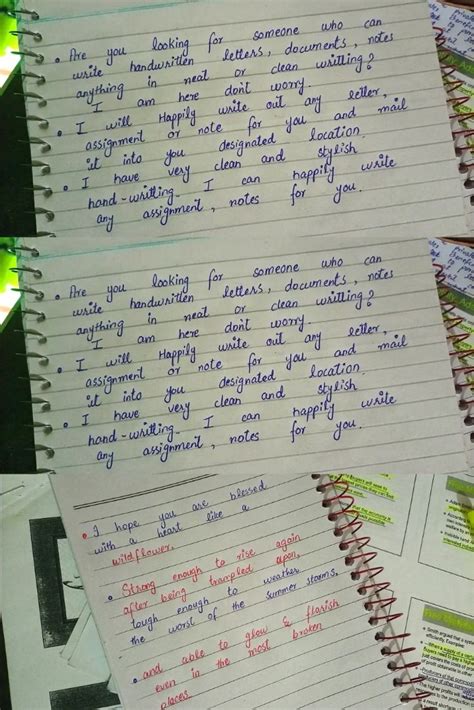 • Are you looking for someone who can
write handwritten letters, documents, notes
anything in neat or clean writting?
I am here dont worry
• I will Happily write out any letter,
assignment or note for you and mail
it into you designated location.
• I have very clean and stylish
hand-writting. I can happily write
any assignment, notes for you.
• Are you looking for someone who can
write handwritten letters, documents, notes
anything in neat or clean writting?
I am here dont worry
• I will Happily write out any letter,
assignment or note for you and mail
it into you designated location.
• I have very clean and stylish
hand-writting. I can happily write
any assignment, notes for you.
• I hope you are blessed
with a heart like a
wildflower.
• Strong enough to rise again
after being trampled upon,
tough enough to weather
the worst of the summer storms,
• and able to glow & florish
even in the most broken
places